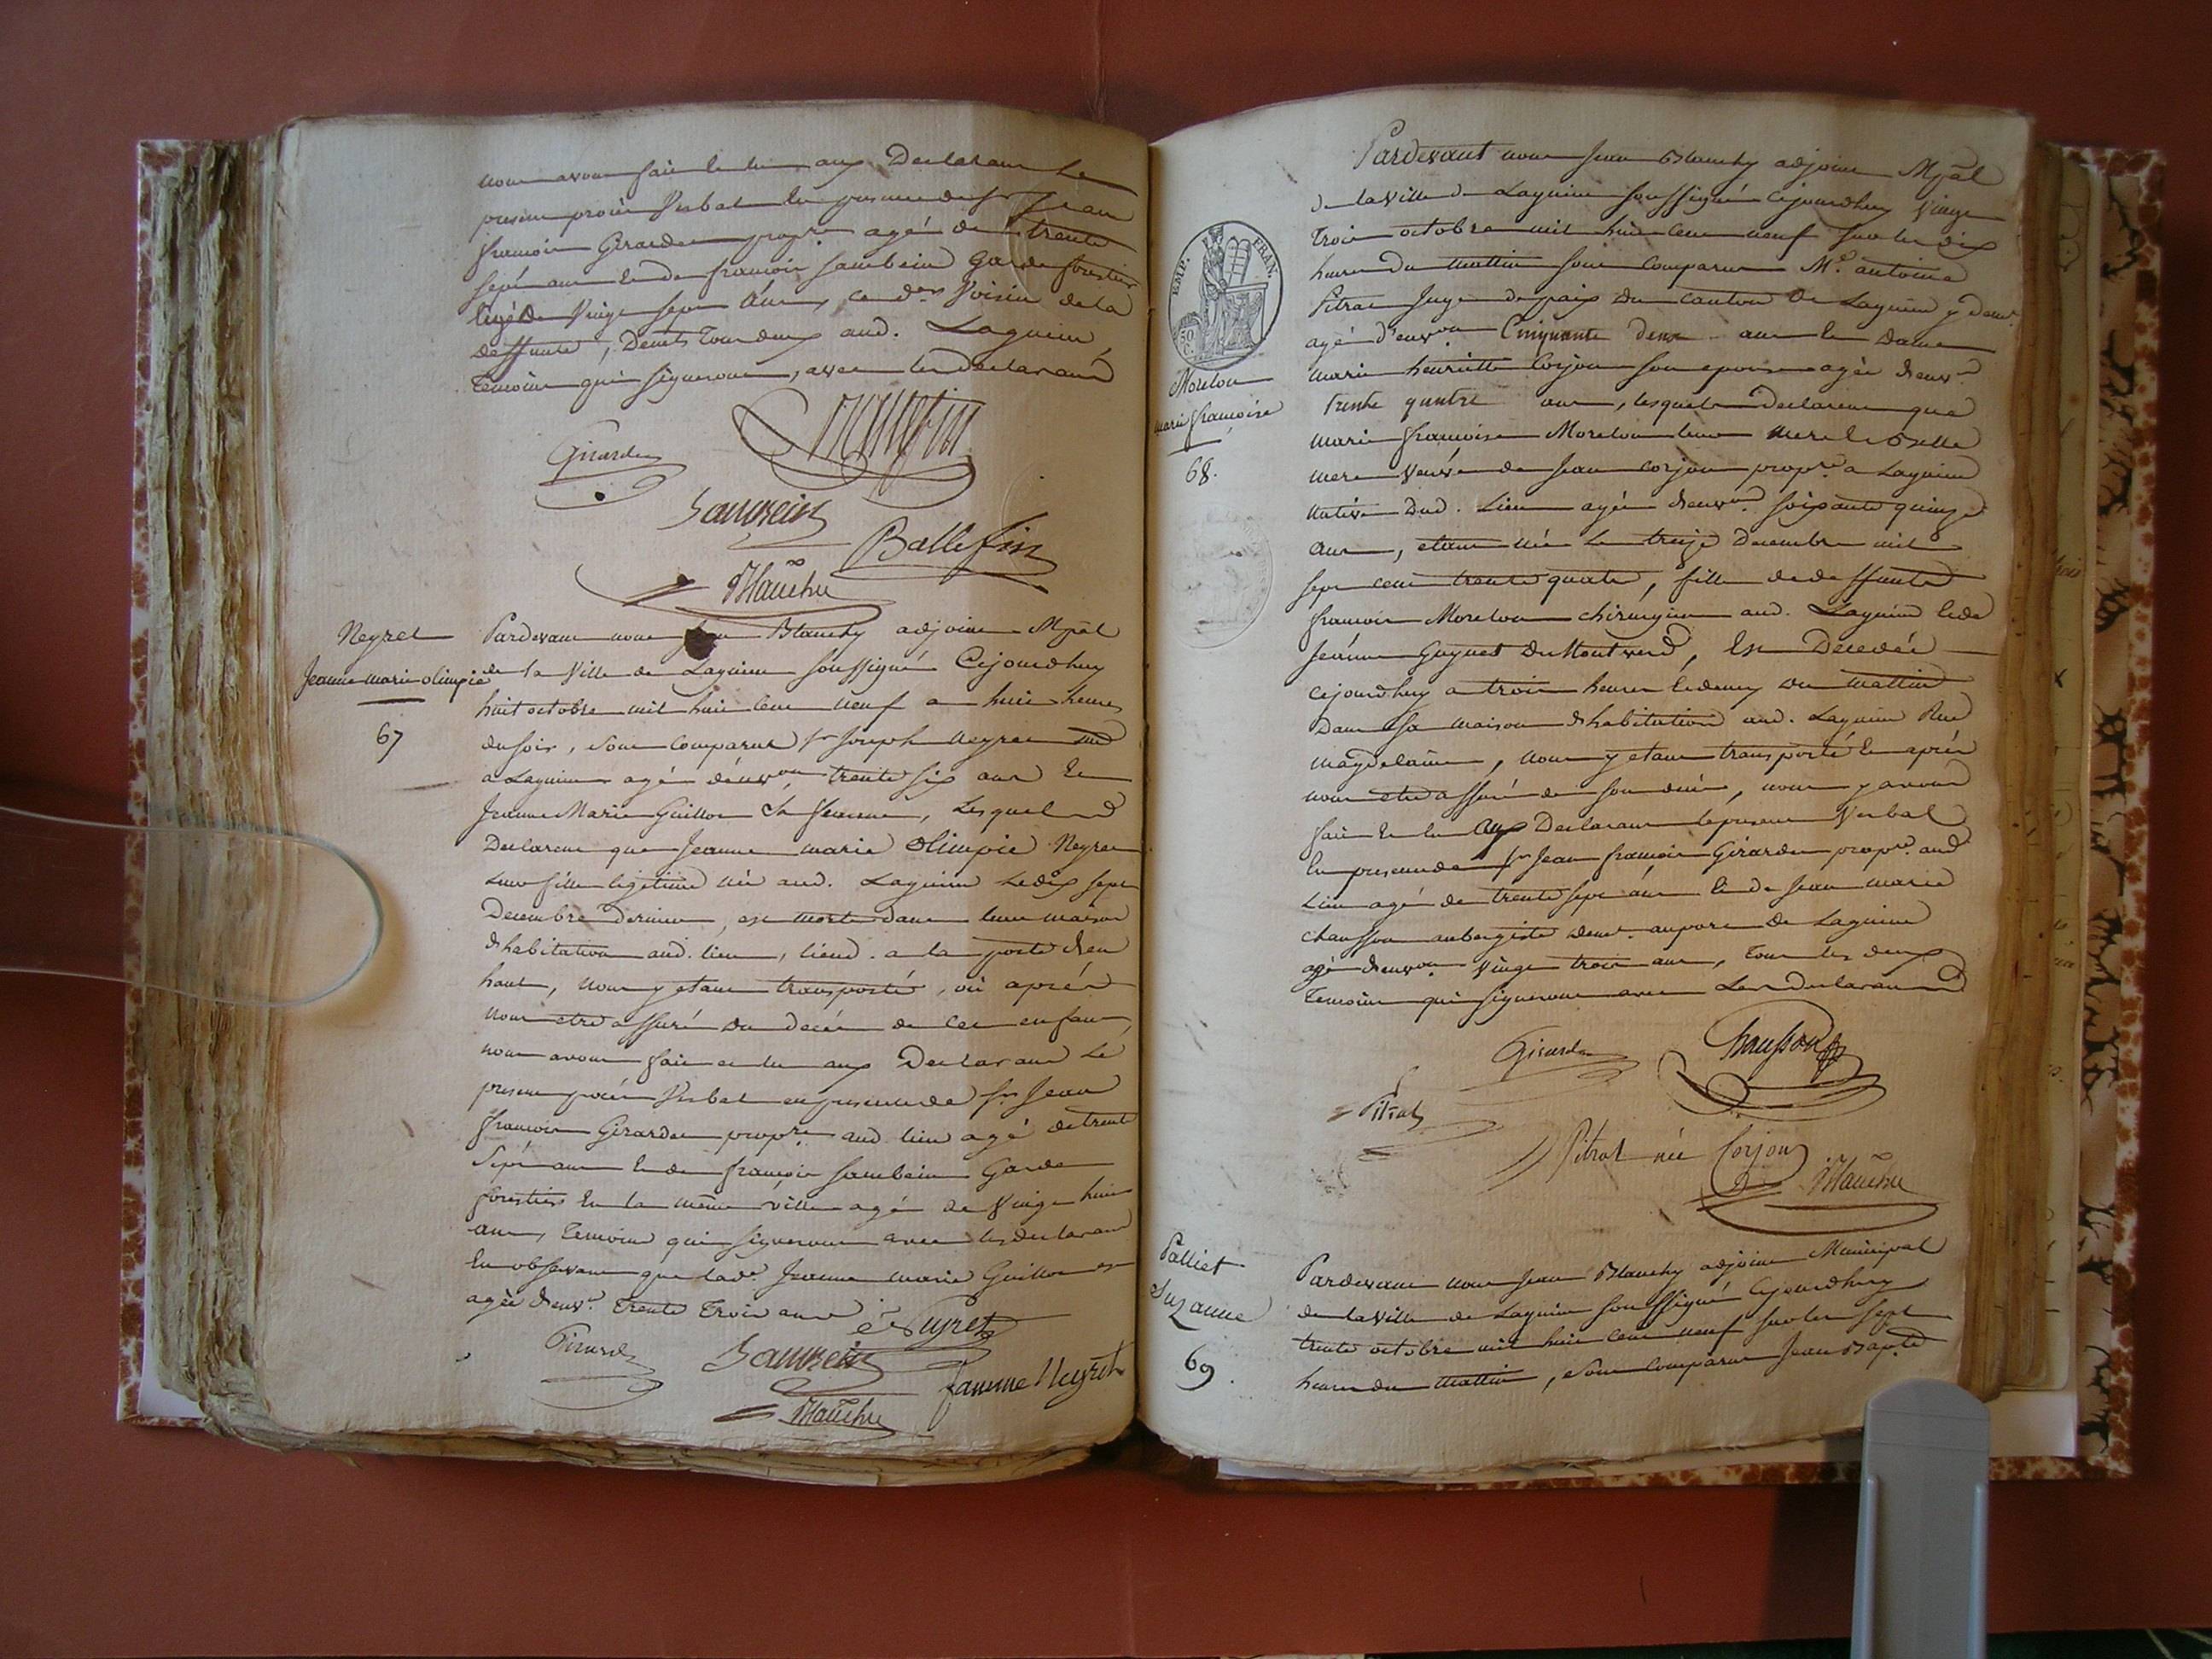 nous avons fait et lu aux Declarants Le
present procès Verbal En presence de Sr Jean
françois Girardet propre agé de trente
sept ans et de françois Sambein Garde forestier
agé de Vingt sept ans, ce der Voisin de la
deffunte, Demts Tous deux aud. Lagnieu,
Temoins qui signeront, avec les declarants
Girardet
Sambein
Ballefin
Blanchy
Neyret
Jeanne marie olimpie
67
Pardevant nous Jean Blanchy adjoint Mpal
de la Ville de Lagnieu soussigné Cejourdhuy
huit octobre mil huit cent neuf a huit heures
du soir, sont comparus Sr Joseph Neyret md
a Lagnieu agé d'environ trente six ans Et
Jeanne Marie Guillot Sa femme, Lesquels
Declarent que Jeanne marie olimpie Neyret
Leur fille legitime née aud. Lagnieu Le dix sept
Decembre Dernier, est morte dans leur maison
d'habitation aud. lieu, lieud. a la porte d'en
haut, nous y etant transporté, où après
nous etre assuré du decès de cet enfant,
nous avons fait et lu aux Declarants Le
present procès Verbal en presence de Sr Jean
françois Girardet propre aud. lieu agé de trente
Sept ans Et de françois Sambein Garde
forestier En la même ville agé de Vingt huit
ans, Temoins qui signeront avec les declarants
En observant que lade Jeanne marie Guillot est
agée d'envn Trente Trois ans
Neyret
Girardet
Sambein
famme Neyret
Blanchy
EMP. FRAN.
50 C.
Morelon
marie françoise
68.
Pardevant nous Jean Blanchy adjoint Mpal
de la Ville de Lagnieu soussigné Cejourdhuy Vingt
Trois octobre mil huit cent neuf sur les dix
heures du mattin sont comparus Me antoine
Pitrat Juge de paix du canton de Lagnieu y demt
agé d'environ Cinquante deux ans Et Dame
marie henriette Corjon son epouse agée d'envn
trente quatre ans, lesquels Declarent que
Marie françoise Morelon leur Mere Et Belle
mere Veuve de Jean Corjon propre a Lagnieu
Native Dud. Lieu agée d'environ soixante quinze
ans, etant née Le treize Decembre mil
sept cent trente quatre, fille de deffunts
françois Morelon chirurgien aud. Lagnieu Et de
Jeanne Guynet du Montverd, Est Decedée
cejourdhuy a trois heures Et demy du mattin
Dans sa maison d'habitation aud. Lagnieu Rue
magdelaine, nous y etant transporté Et après
nous etre assuré de son decès, nous y avons
fait Et lu aux Declarants le present Verbal
En presence de Sr Jean françois Girardet propre aud.
Lieu agé de trente sept ans Et de Jean marie
Chausson aubergiste demt au port de Lagnieu
agé d'environ Vingt trois ans, Tous les deux
Temoins qui signeront avec Les declarants
Girardet
Chausson
Pitrat
Pitrat née Corjon
Blanchy
Palliet
Suzanne
69.
Pardevant nous Jean Blanchy adjoint Municipal
de la Ville de Lagnieu soussigné Cejourdhuy
trente octobre mil huit cent neuf sur les sept
heures du mattin, sont comparus Jean Bapte